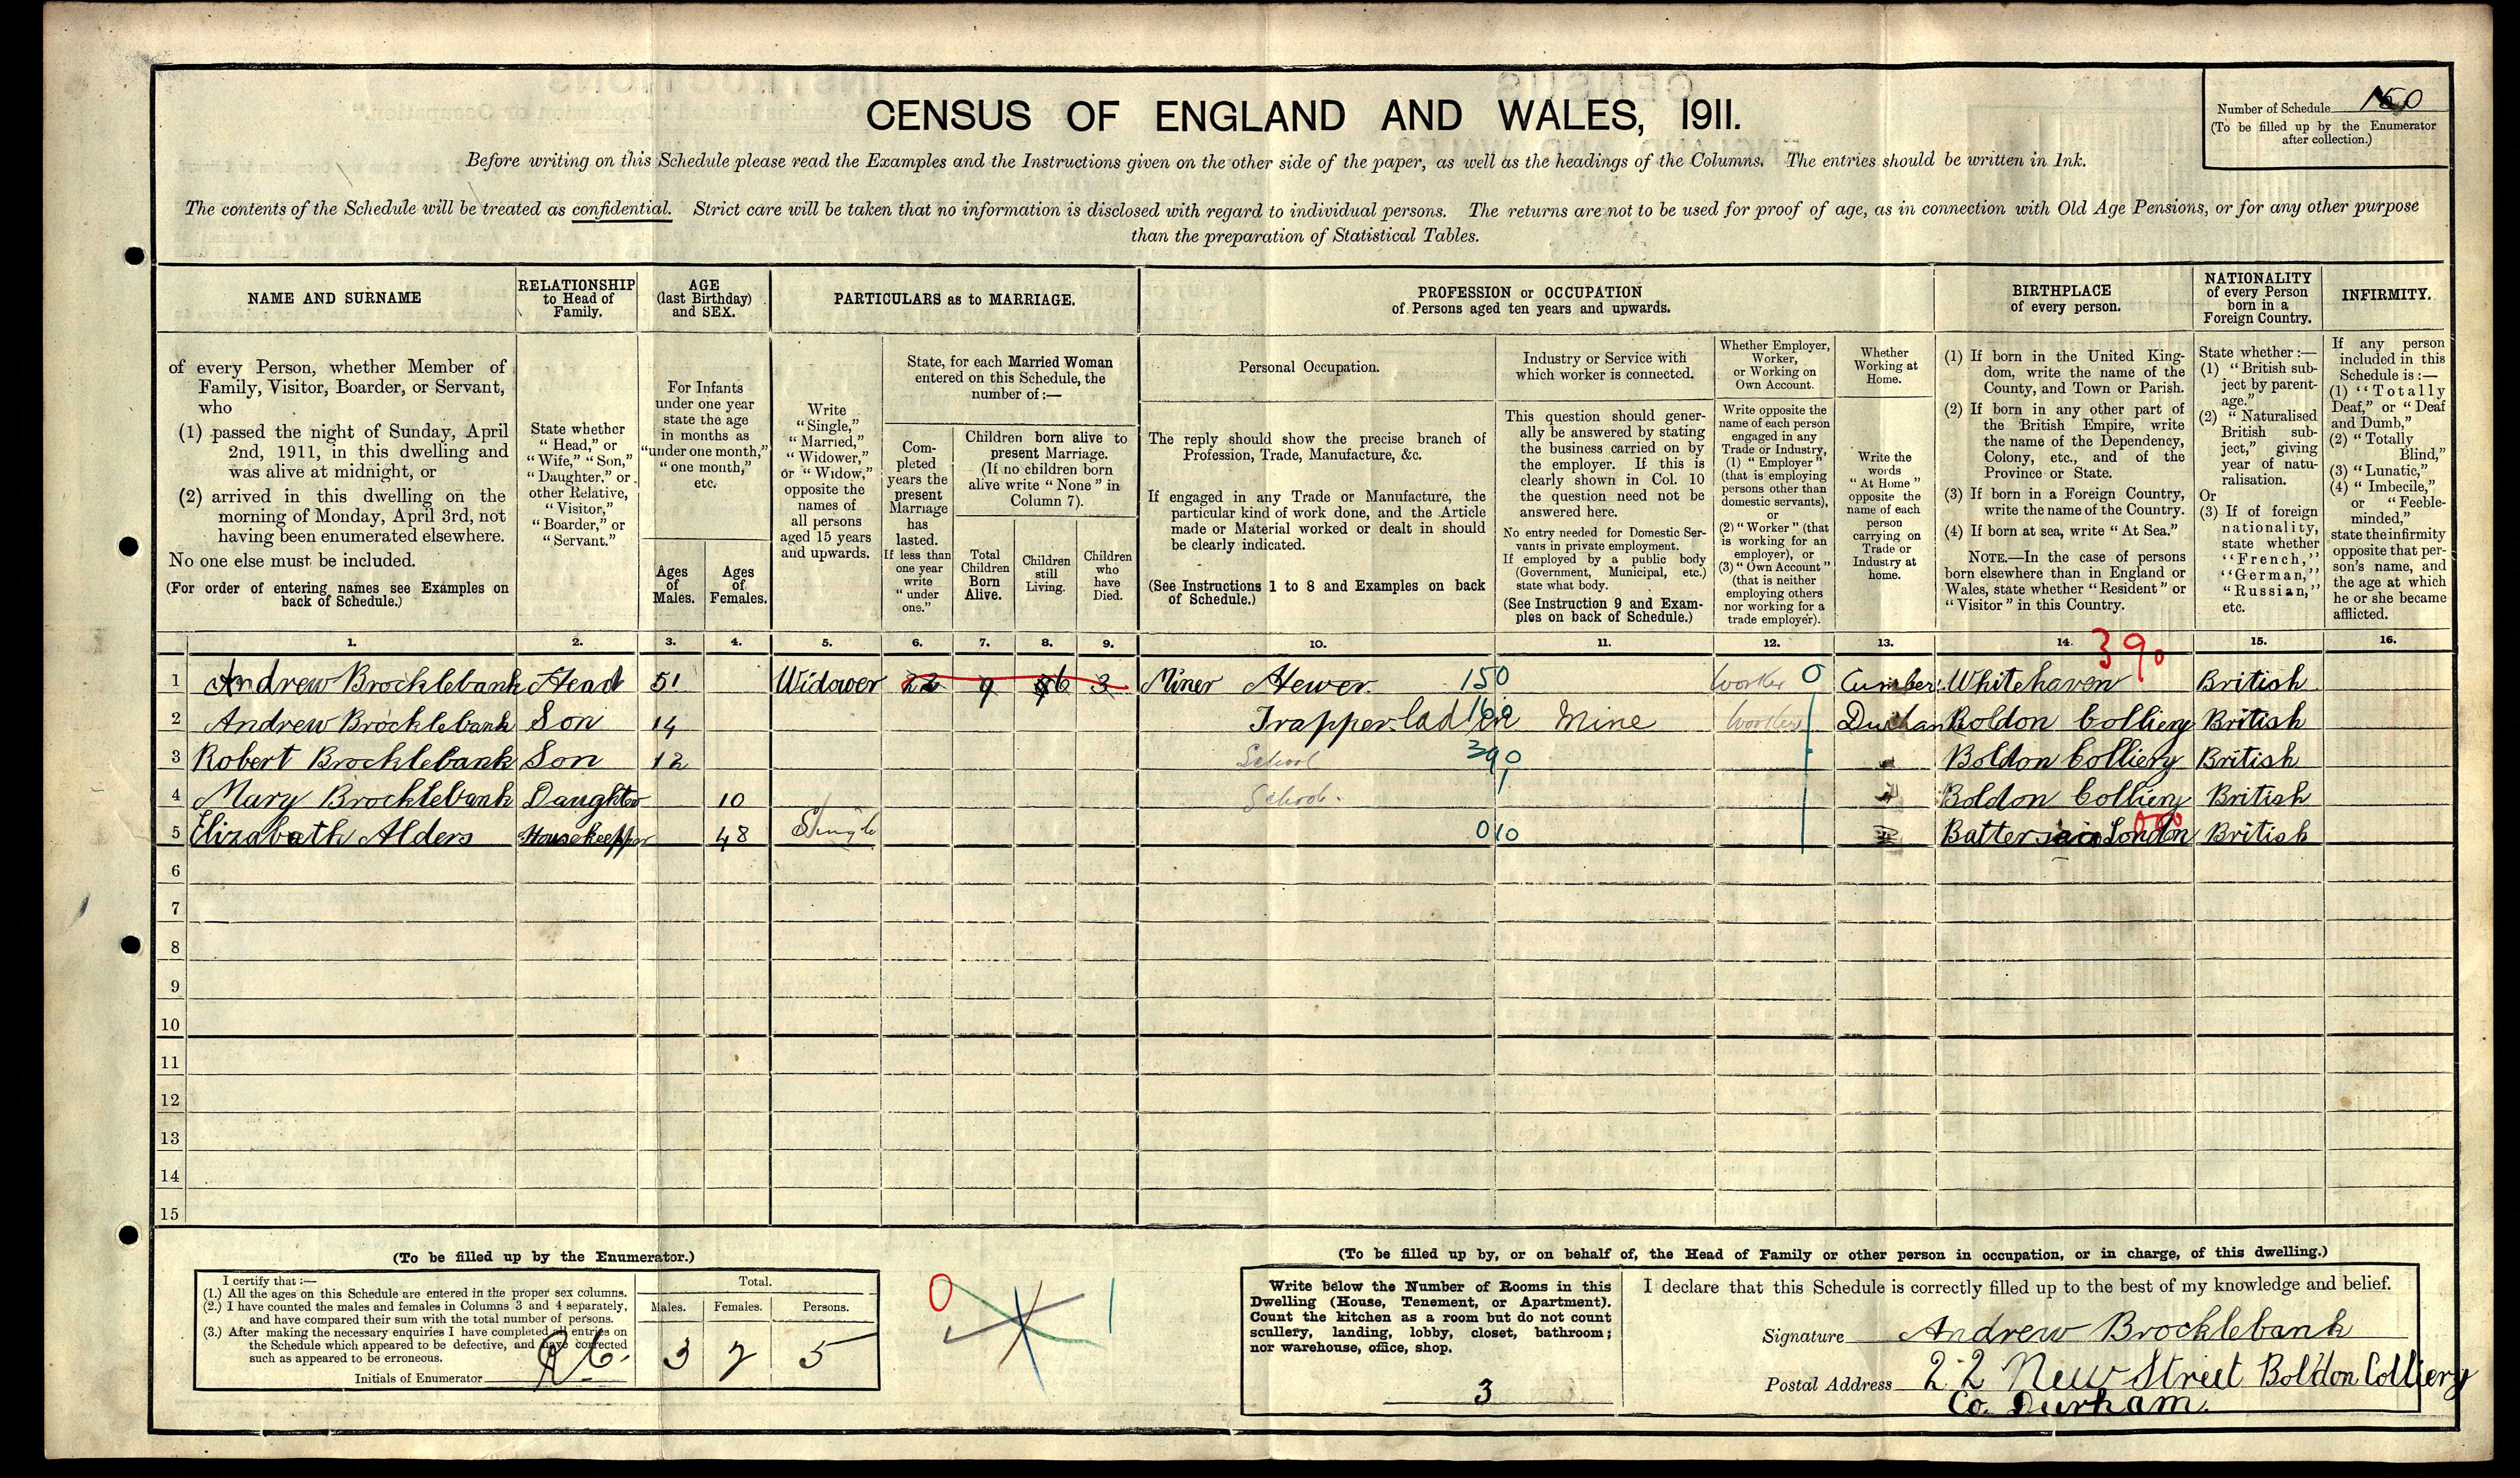 CENSUS OF ENGLAND AND WALES, 1911.
Number of Schedule 150
(To be filled up by the Enumerator
after collection.)
Before writing on this Schedule please read the Examples and the Instructions given on the other side of the paper, as well as the headings of the Columns. The entries should be written in Ink.
The contents of the Schedule will be treated as confidential. Strict care will be taken that no information is disclosed with regard to individual persons. The returns are not to be used for proof of age, as in connection with Old Age Pensions, or for any other purpose
than the preparation of Statistical Tables.
NAME AND SURNAME
RELATIONSHIP
to Head of
Family.
AGE
(last Birthday)
and SEX.
PARTICULARS as to MARRIAGE.
PROFESSION or OCCUPATION
of Persons aged ten years and upwards.
BIRTHPLACE
of every person.
NATIONALITY
of every Person
born in a
Foreign Country.
INFIRMITY.
of every Person, whether Member of
Family, Visitor, Boarder, or Servant,
who
(1) passed the night of Sunday, April
2nd, 1911, in this dwelling and
was alive at midnight, or
(2) arrived in this dwelling on the
morning of Monday, April 3rd, not
having been enumerated elsewhere.
No one else must be included.
(For order of entering names see Examples on
back of Schedule.)
State whether
"Head," or
"Wife," "Son,"
"Daughter," or
other Relative,
"Visitor,"
"Boarder," or
"Servant."
For Infants
under one year
state the age
in months as
"under one month,"
"one month,"
etc.
Ages
of
Males.
Ages
of
Females.
Write
"Single,"
"Married,"
"Widower,"
or "Widow,"
opposite the
names of
all persons
aged 15 years
and upwards.
State, for each Married Woman
entered on this Schedule, the
number of:—
Com-
pleted
years the
present
Marriage
has
lasted.
If less than
one year
write
"under
one."
Children born alive to
present Marriage.
(If no children born
alive write "None" in
Column 7).
Total
Children
Born
Alive.
Children
still
Living.
Children
who
have
Died.
Personal Occupation.
The reply should show the precise branch of
Profession, Trade, Manufacture, &c.
If engaged in any Trade or Manufacture, the
particular kind of work done, and the Article
made or Material worked or dealt in should
be clearly indicated.
(See Instructions 1 to 8 and Examples on back
of Schedule.)
Industry or Service with
which worker is connected.
This question should gener-
ally be answered by stating
the business carried on by
the employer. If this is
clearly shown in Col. 10
the question need not be
answered here.
No entry needed for Domestic Ser-
vants in private employment.
If employed by a public body
(Government, Municipal, etc.)
state what body.
(See Instruction 9 and Exam-
ples on back of Schedule.)
Whether Employer,
Worker,
or Working on
Own Account.
Write opposite the
name of each person
engaged in any
Trade or Industry,
(1) "Employer"
(that is employing
persons other than
domestic servants),
or
(2) "Worker" (that
is working for an
employer), or
(3) "Own Account"
(that is neither
employing others
nor working for a
trade employer).
Whether
Working at
Home.
Write the
words
"At Home"
opposite the
name of each
person
carrying on
Trade or
Industry at
home.
(1) If born in the United King-
dom, write the name of the
County, and Town or Parish.
(2) If born in any other part of
the British Empire, write
the name of the Dependency,
Colony, etc., and of the
Province or State.
(3) If born in a Foreign Country,
write the name of the Country.
(4) If born at sea, write "At Sea."
NOTE.—In the case of persons
born elsewhere than in England or
Wales, state whether "Resident" or
"Visitor" in this Country.
State whether:—
(1) "British sub-
ject by parent-
age."
(2) "Naturalised
British sub-
ject," giving
year of natu-
ralisation.
Or
(3) If of foreign
nationality,
state whether
"French,"
"German,"
"Russian,"
etc.
If any person
included in this
Schedule is:—
(1) "Totally
Deaf," or "Deaf
and Dumb,"
(2) "Totally
Blind,"
(3) "Lunatic,"
(4) "Imbecile,"
or "Feeble-
minded,"
state the infirmity
opposite that per-
son's name, and
the age at which
he or she became
afflicted.
1. 2. 3. 4. 5. 6. 7. 8. 9. 10. 11. 12. 13. 14. 15. 16.
390
1 Andrew Brocklebank Head 51 Widower 22 9 6 3 Miner Hewer 150 Worker 0 Cumber: Whitehaven British
2 Andrew Brocklebank Son 14 Trapper lad in 160 Mine Worker Durham Boldon Colliery British
3 Robert Brocklebank Son 12 School 390 Boldon Colliery British
4 Mary Brocklebank Daughter 10 School Boldon Colliery British
5 Elizabeth Alders Housekeeper 48 Single 010 Battersea London 000 British
6
7
8
9
10
11
12
13
14
15
(To be filled up by the Enumerator.)
I certify that:—
(1.) All the ages on this Schedule are entered in the proper sex columns.
(2.) I have counted the males and females in Columns 3 and 4 separately,
and have compared their sum with the total number of persons.
(3.) After making the necessary enquiries I have completed all entries on
the Schedule which appeared to be defective, and have corrected
such as appeared to be erroneous.
Initials of Enumerator
Total.
Males. Females. Persons.
3 2 5
0 1
(To be filled up by, or on behalf of, the Head of Family or other person in occupation, or in charge, of this dwelling.)
Write below the Number of Rooms in this
Dwelling (House, Tenement, or Apartment).
Count the kitchen as a room but do not count
scullery, landing, lobby, closet, bathroom;
nor warehouse, office, shop.
3
I declare that this Schedule is correctly filled up to the best of my knowledge and belief.
Signature Andrew Brocklebank
Postal Address 22 New Street Boldon Colliery
Co. Durham.